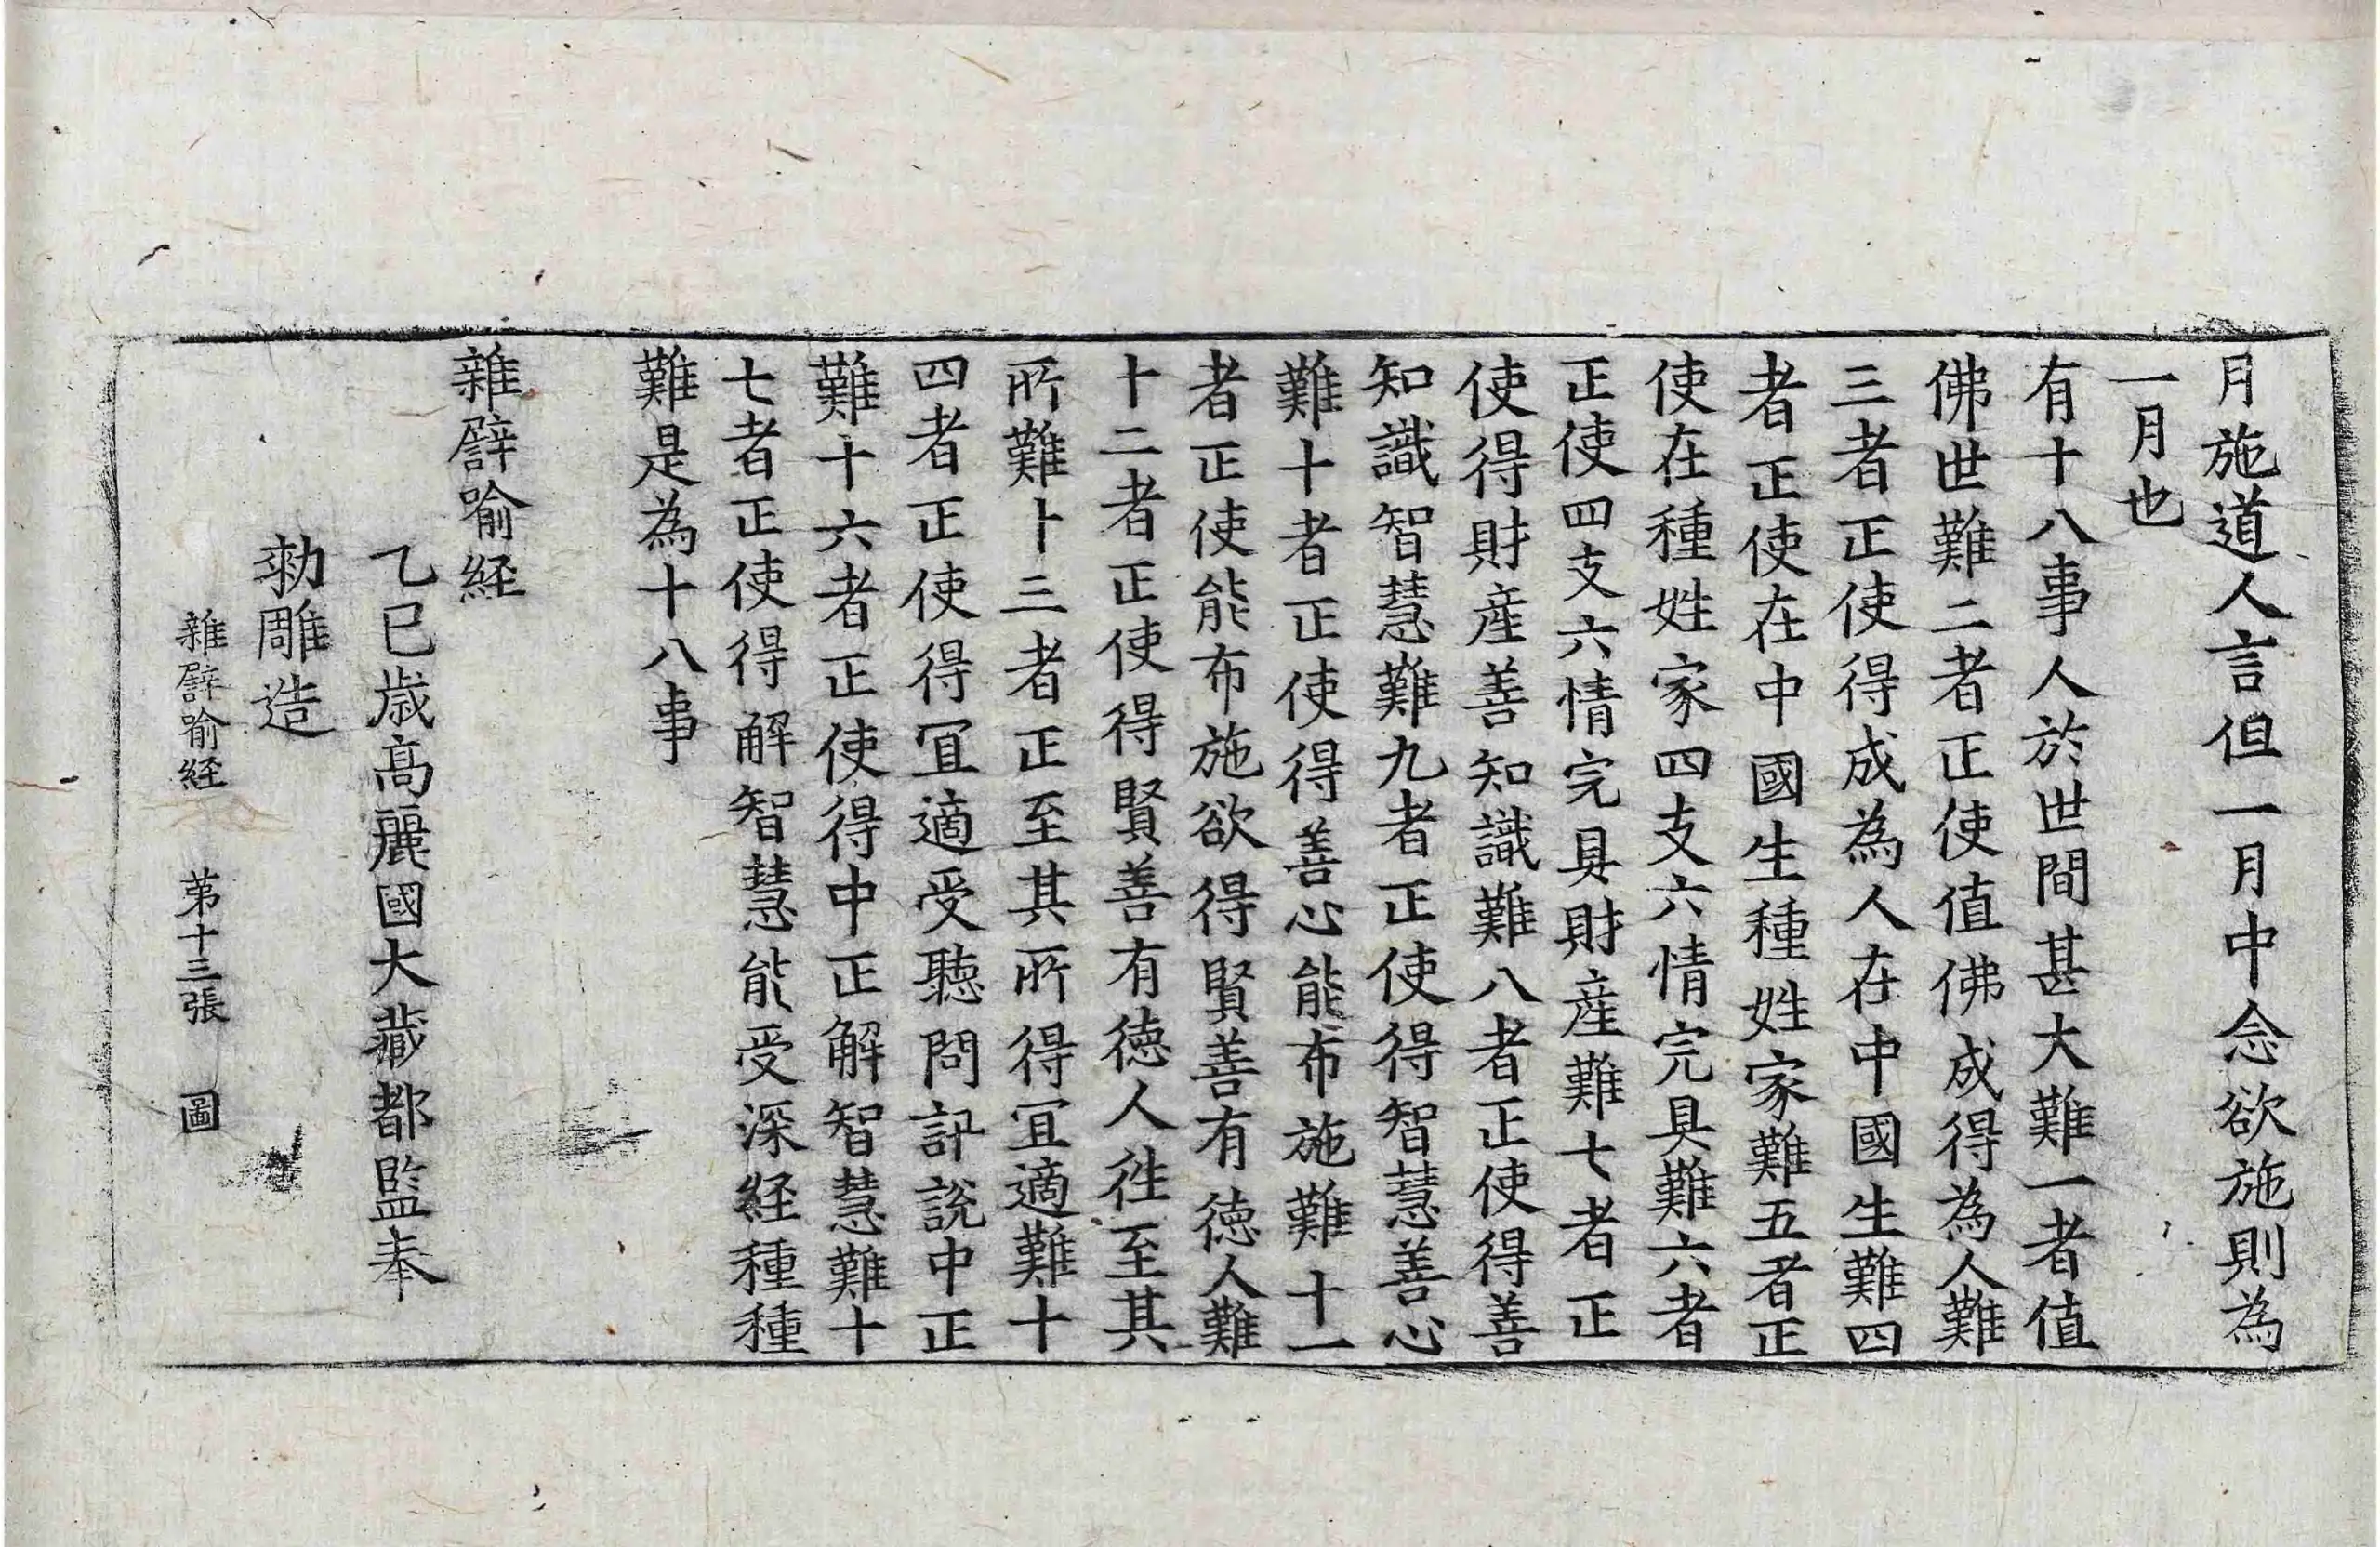 月施道人言但一月中念欲施則為
一月也
有十八事人於世間甚大難一者值
佛世難二者正使值佛成得為人難
三者正使得成為人在中國生難四
者正使在中國生種姓家難五者正
使在種姓家四支六情完具難六者
正使四支六情完具財産難七者正
使得財産善知識難八者正使得善
知識智慧難九者正使得智慧善心
難十者正使得善心能布施難十一
者正使能布施欲得賢善有徳人難
十二者正使得賢善有徳人徃至其
所難十三者正至其所得冝適難十
四者正使得冝適受聽問訃說中正
難十六者正使得中正解智慧難十
七者正使得解智慧能受深経種種
難是為十八事
雜譬喻経
乙巳歳髙麗國大藏都監奉
勑雕造
雜譬喻経 苐十三張 圖